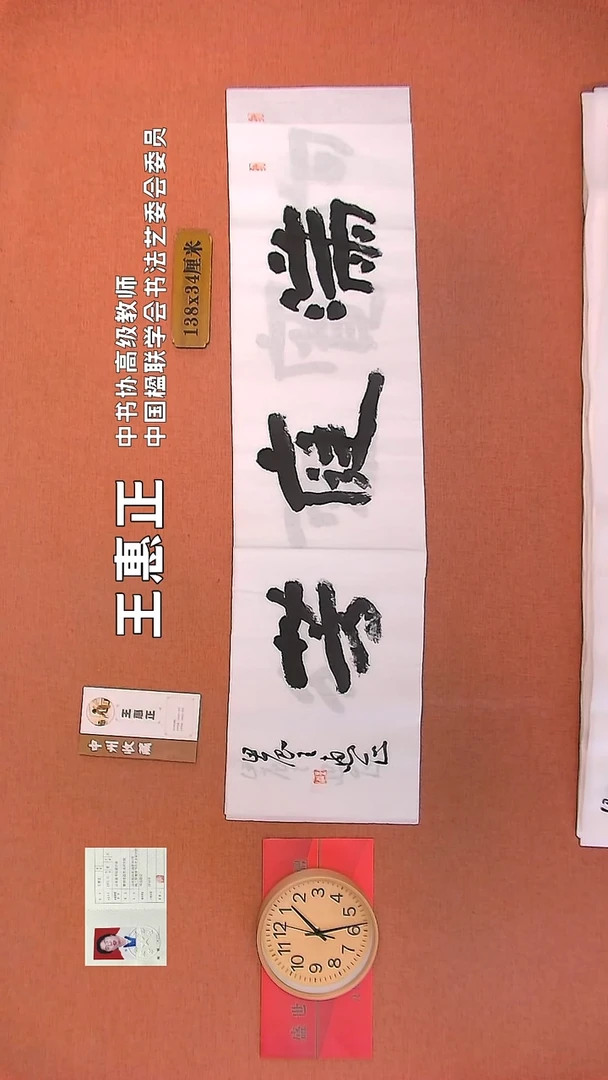 王惠正
中书协高级教师
中国楹联学会书法艺委会委员
138x34厘米
满庭芳
惠正
中州收藏
王惠正
12
1
2
3
4
5
6
7
8
9
10
11